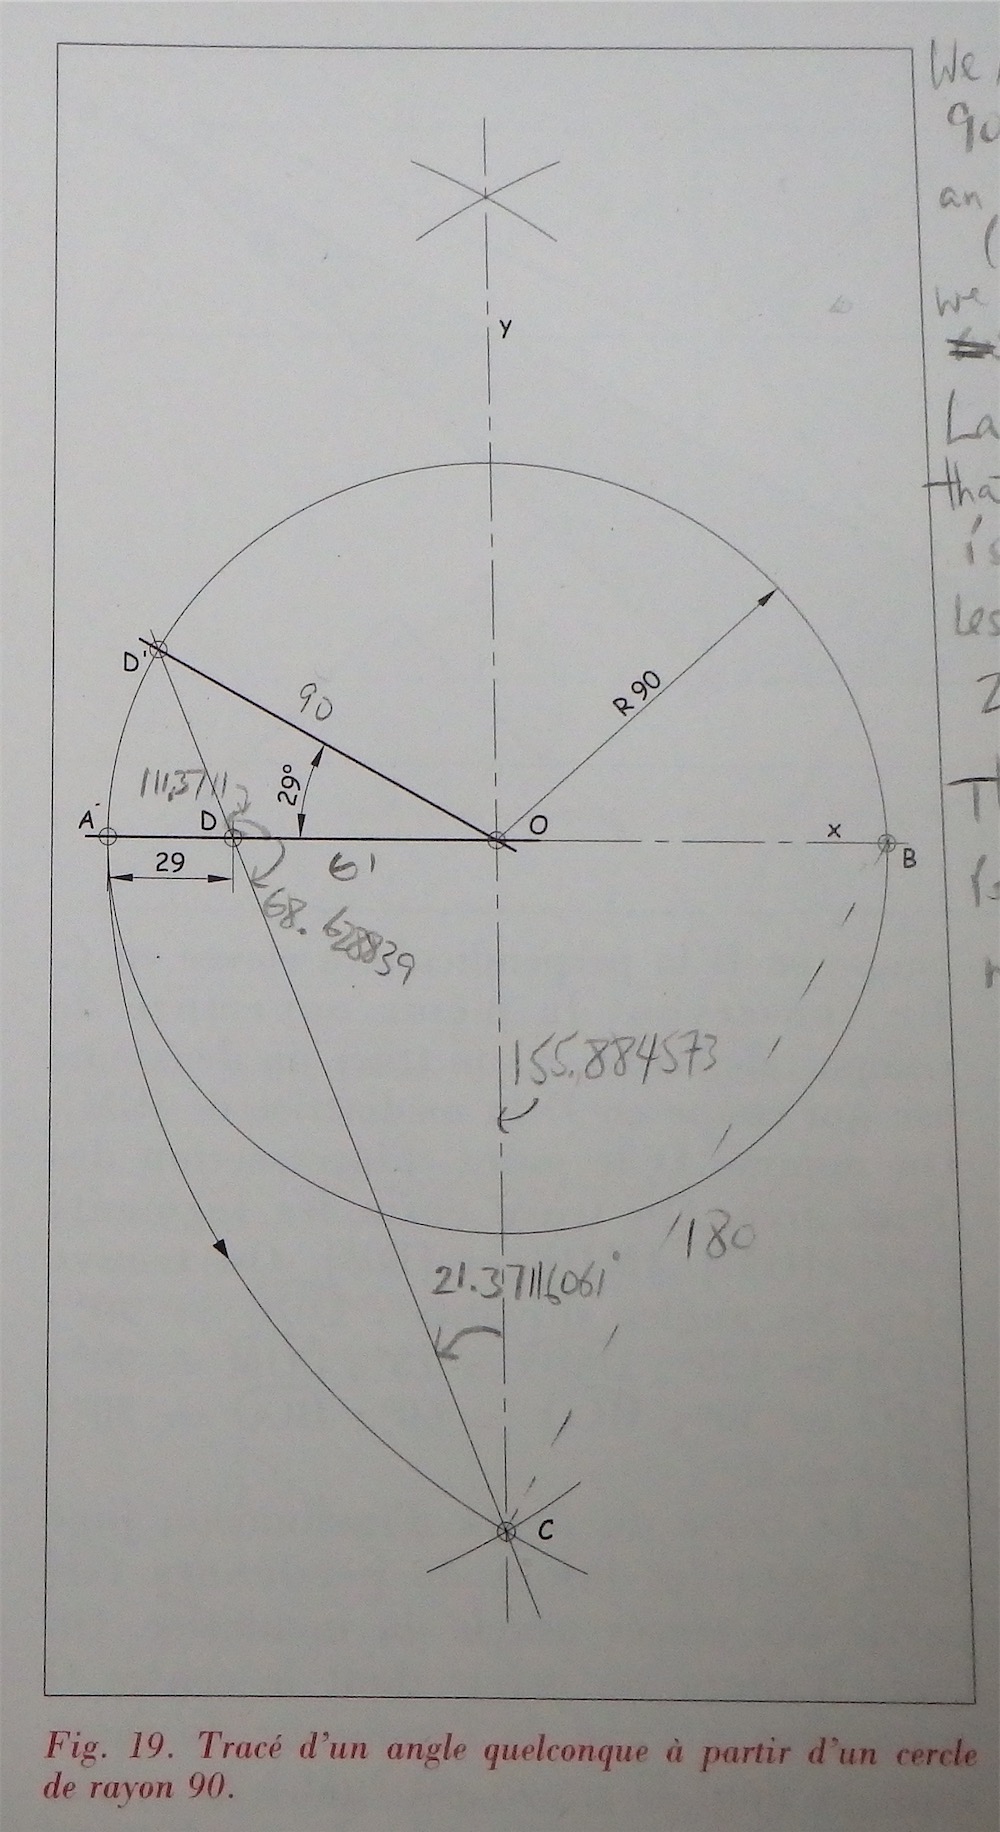 We
90
an
(
we
y
La
tha
is
les
D'
90
R 90
29°
111,3711
A
D
O
x
B
29
61
68.628839
155.884573
180
21.37116061°
C
Fig. 19. Tracé d'un angle quelconque à partir d'un cercle
de rayon 90.